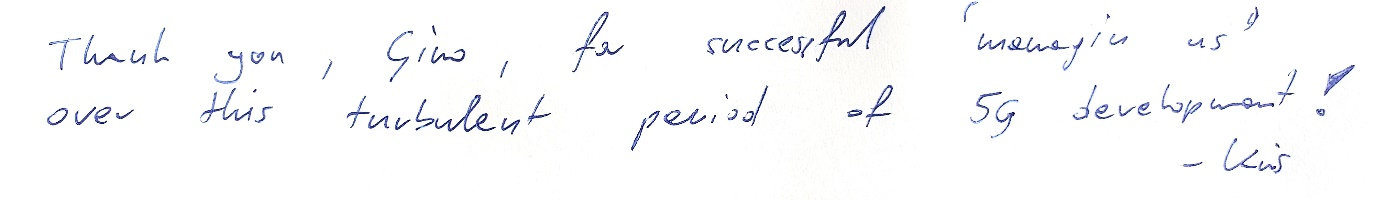 Thank you, Gino, for successful "managin us"
over this turbulent period of 5G development!
- Kris